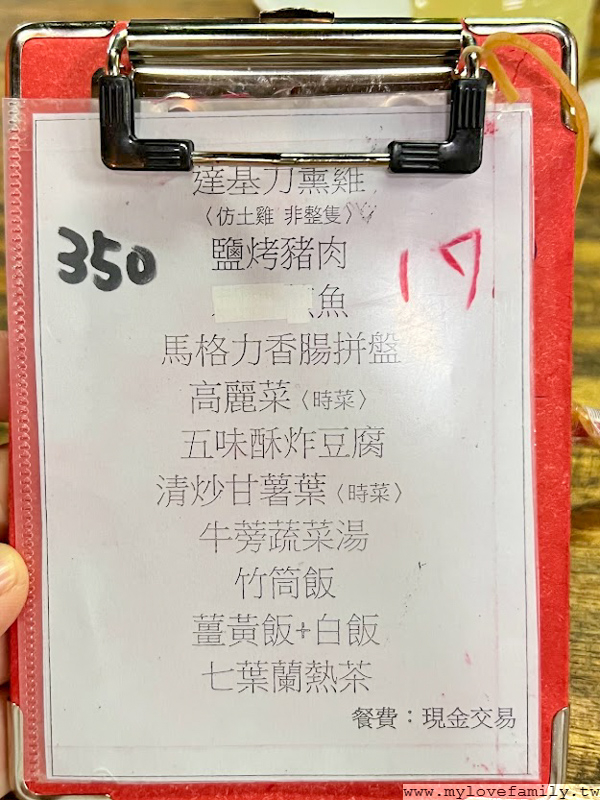 達基力熏雞
〈仿土雞 非整隻〉
350
鹽烤豬肉
17.
魚
馬格力香腸拼盤
高麗菜〈時菜〉
五味酥炸豆腐
清炒甘薯葉〈時菜〉
牛蒡蔬菜湯
竹筒飯
薑黃飯+白飯
七葉蘭熱茶
餐費：現金交易
www.mylovefamily.tw